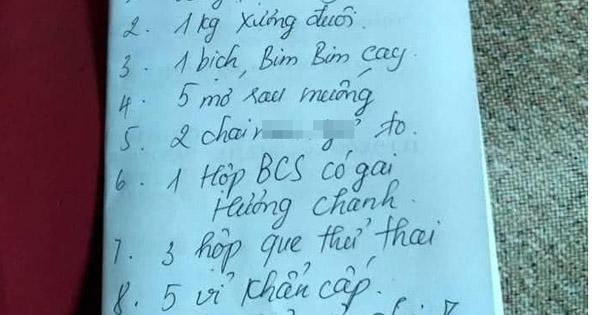 2. 1kg xương đuôi.
3. 1 bịch, Bim Bim cay.
4. 5 mớ rau muống
5. 2 chai to.
6. 1 Hộp BCS có gai
Hương chanh.
7. 3 hộp que thử thai
8. 5 vỉ khẩn cấp.